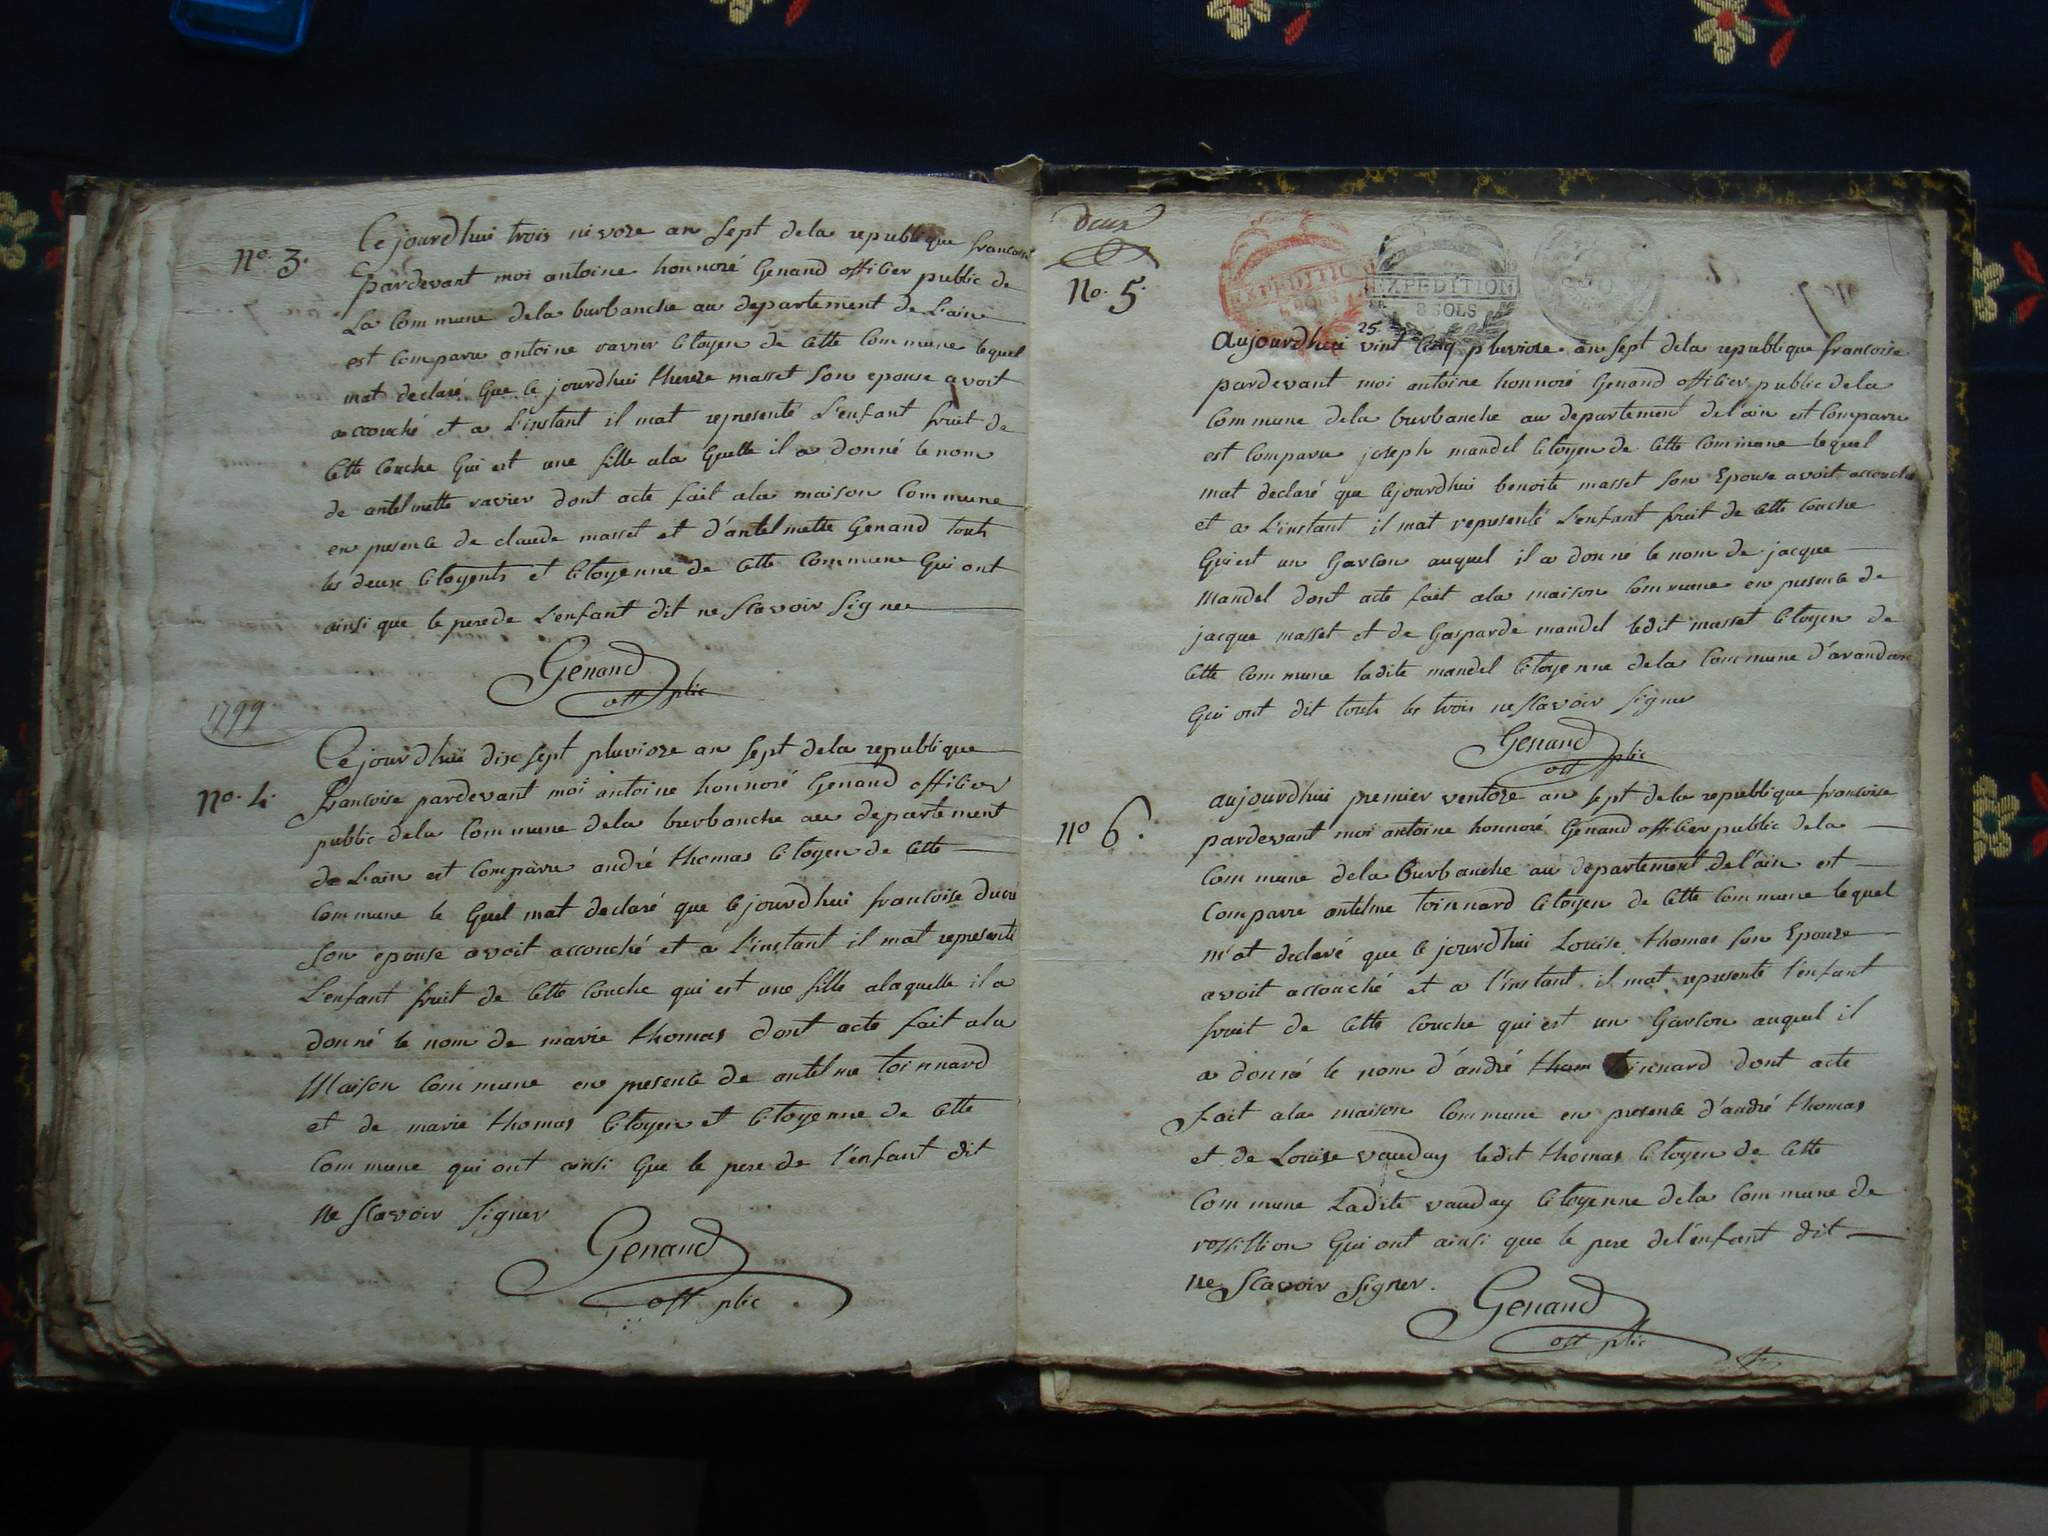 No. 3.
Ce jourdhui trois nivoze an sept dela republique francoise
pardevant moi antoine honnoré Genand officier public de
La Commune dela burbanche au departement de L'ain
est comparu antoine ravier citoyen de cette Commune lequel
mat declaré que ce jourdhui thereze masset son epouse avoit
accouché et a L'instant il mat representé L'enfant fruit de
cette couche qui est une fille ala quelle il a donné le nom
de antelmette ravier dont acte fait ala maison Commune
en presence de claude masset et d'antelmette Genand touts
les deux citoyents et citoyenne de cette Commune qui ont
ainsi que le pere de L'enfant dit ne scavoir signer
Genand
off plic
1799
No. 4.
Ce jourdhui dix sept pluvioze an sept dela republique
francoise pardevant moi antoine honnoré Genand officier
public dela Commune dela burbanche au departement
de L'ain est comparu andré thomas citoyen de cette
Commune le quel mat declaré que cejourdhui francoise ducru
son epouse avoit accouché et a L'instant il mat representé
L'enfant fruit de cette couche qui est une fille alaquelle il a
donné le nom de marie thomas dont acte fait ala
Maison Commune en presence de antelme toinnard
et de marie thomas citoyen et citoyenne de cette
Commune qui ont ainsi que le pere de l'enfant dit
ne scavoir signer
Genand
off plic
deux
EXPEDITION
SOLS
EXPEDITION
8 SOLS
No. 5.
25
Aujourdhui vint cinq pluvioze an sept dela republique francoise
pardevant moi antoine honnoré Genand officier public dela
Commune dela burbanche au departement de l'ain est comparu
est comparu joseph mandel citoyen de cette Commune lequel
mat declaré que cejourdhui benoite masset son Epouse avoit accouché
et a L'instant il mat representé L'enfant fruit de cette couche
Qui est un Garcon auquel il a donné le nom de jacque
Mandel dont acte fait ala maison Commune en presence de
jacque masset et de Gasparde mandel ledit masset citoyen de
cette Commune ladite mandel citoyenne dela Commune d'
Qui ont dit touts les trois ne scavoir signer
Genand
off plic
No 6.
aujourdhui premier ventoze an sept de la republique francoise
pardevant moi antoine honnoré Genand officier public dela
Commune dela Burbanche au departement de l'ain est
Comparu antelme toinnard citoyen de cette Commune lequel
m'at declaré que ce jourdhui Louise thomas son Epouze
avoit accouché et a l'instant il mat representé l'enfant
fruit de cette couche qui est un Garcon auquel il
a donné le nom d'andré tham toinnard dont acte
fait ala maison Commune en presence d'andré thomas
et de Louise vauday ledit thomas citoyen de cette
Commune Ladite vauday citoyenne dela Commune de
rossillion Qui ont ainsi que le pere de l'enfant dit
ne scavoir signer.
Genand
off plic